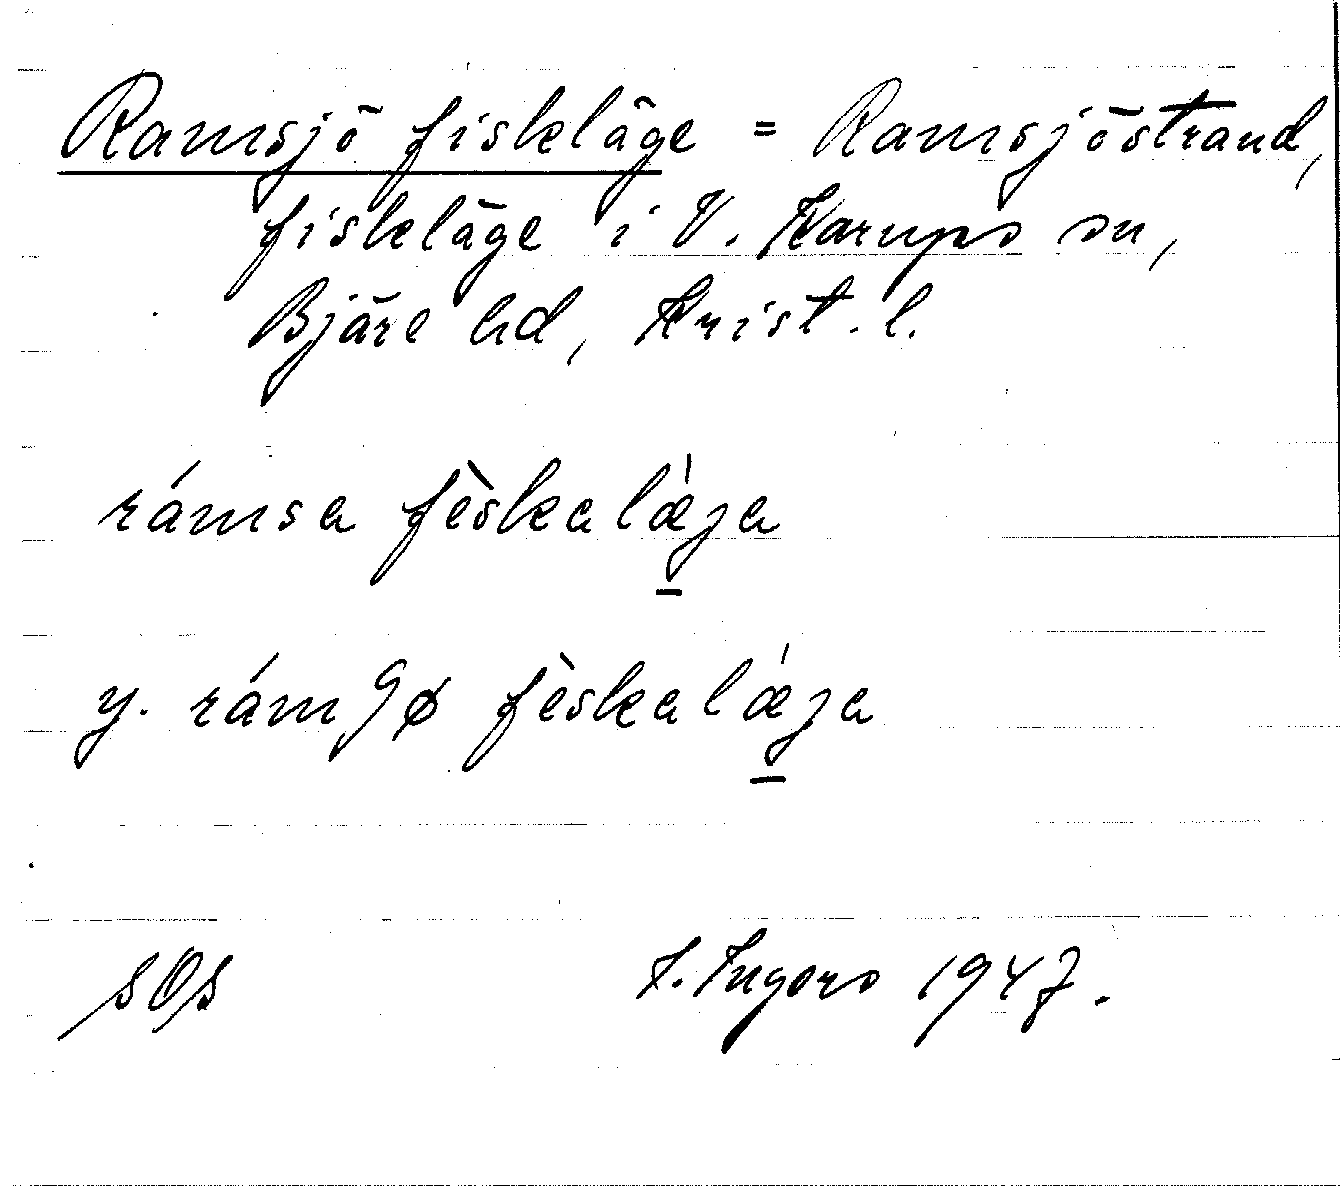 Ramsjö fiskeläge = Ramsjöstrand,
fiskeläge i V. Karups sn,
Bjäre hd, Krist. l.
rámsa fèskalǽja
y. rámʃø fèskalǽja
SOS I. Ingers 1947.